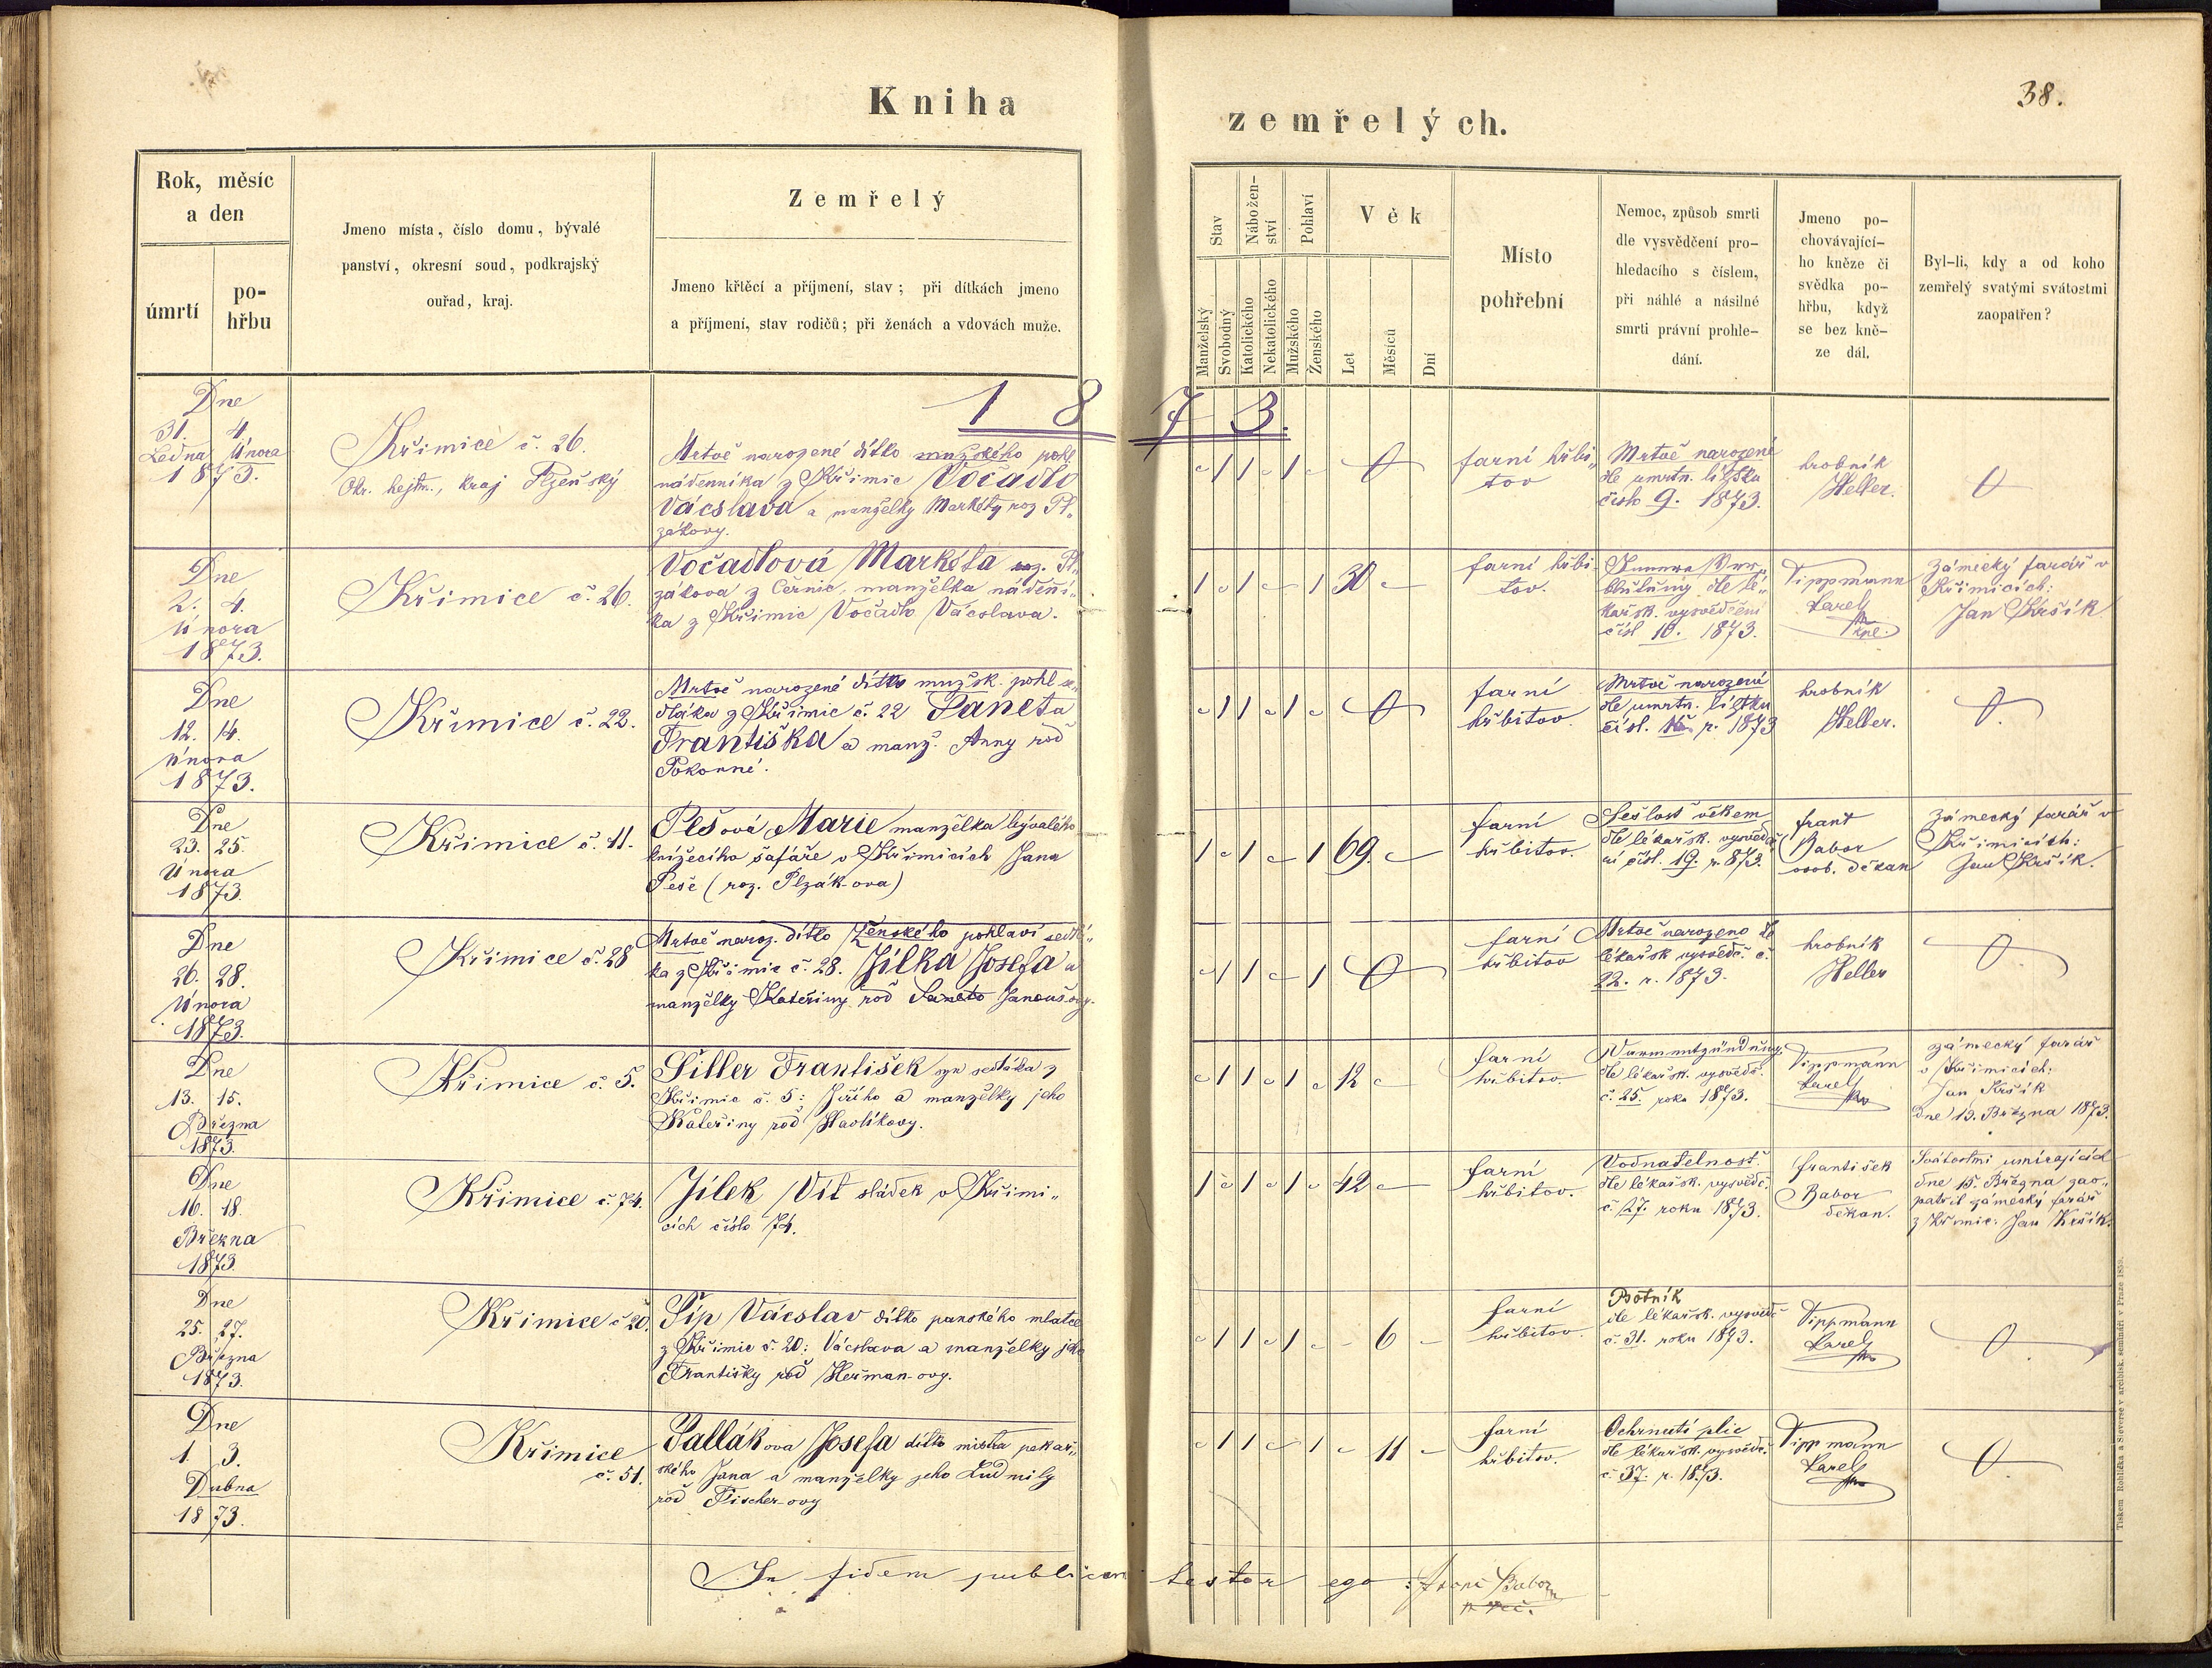 Kniha
zemřelých.
38.
Rok, měsíc
a den
úmrtí
po-
hřbu
Jmeno místa, číslo domu, bývalé
panství, okresní soud, podkrajský
ouřad, kraj.
Zemřelý
Jmeno křtěcí a příjmení, stav; při dítkách jmeno
a příjmení, stav rodičů; při ženách a vdovách muže.
Stav
Nábožen-
ství
Pohlaví
Věk
Manželský
Svobodný
Katolického
Nekatolického
Mužského
Ženského
Let
Měsíců
Dní
Místo
pohřební
Nemoc, způsob smrti
dle vysvědčení pro-
hledacího s číslem,
při náhlé a násilné
smrti právní prohle-
dání.
Jmeno po-
chovávající-
ho kněze či
svědka po-
hřbu, když
se bez kně-
ze dál.
Byl-li, kdy a od koho
zemřelý svatými svátostmi
zaopatřen?
1873.
Dne
31. 4.
Ledna Února
1873.
Křimice č. 26.
Okr. hejtm., kraj Plzeňský
Mrtvě narozené dítko mužského pohl
nádenníka z Křimic Vočadlo
Václava a manželky Markéty roz Pl„
zákovy.
farní hřbi„
tov
Mrtvě narozené
dle umrtn. lístku
číslo 9. 1873.
hrobník
Heller.
Dne
2. 4.
Února
1873.
Křimice č. 26.
Vočadlová Markéta roz. Pl„
zákova z Černic, manželka nádeňí„
ka z Křimic Vočadlo Václava.
1 1 1 30
farní hřbi„
tov.
dle lé„
kařsk. vysvědčení
čísl 10. 1873.
Tippmann
Karel
kpl.
Zámecký farář v
Křimicích:
Jan Kršík
Dne
12. 14.
února
1873.
Křimice č. 22.
Mrtvě narozené dítko mužsk. pohl se„
dláka z Křimic č. 22 Paneta
Františka a manž. Anny rod
Pokorné.
farní
hřbitov.
Mrtvě narozené
dle umrtn. lístku
čísl. r. 1873
hrobník
Heller.
Dne
23. 25.
Února
1873.
Křimice č. 11.
Pešová Marie manželka bývalého
knížecího šafáře v Křimicích Jana
Peše (roz. Plzák-ova)
1 1 1 69.
farní
hřbitov.
Sešlost věkem
dle lékařsk. vysvědč„
ní čísl. 19. r. 873.
frant
Babor
osob. děkan
Zámecký farář v
Křimicích:
Jan Kršík.
Dne
26. 28.
Února
1873.
Křimice č. 28
Mrtvě naroz. dítko Ženského pohlaví sedlá„
ka z Křimic č. 28. Jílka Josefa a
manželky Kateřiny rod Janouš-ovy.
farní
hřbitov
Mrtvě narozeno dle
lékařsk vysvědč. č.
22. r. 1873.
hrobník
Heller
Dne
13. 15.
Března
1873.
Křimice č. 5.
Šiller František syn sedláka z
Křimic č. 5: Jiřího a manželky jeho
Kateřiny rod Havlíkovy.
1 1 1 12
farní
hřbitov.
dle lékařsk. vysvědč.
č. 25. roku 1873.
Tippmann
Karel
zámecký farář
v Křimicích:
Jan Kršík
Dne 13. Března 1873.
Dne
16. 18.
Března
1873.
Křimice č. 74.
Jílek Vít sládek v Křimi„
cích číslo 74.
1 1 1 42
farní
hřbitov.
Vodnatelnost
dle lékařsk. vysvědč.
č. 27. roku 1873.
František
Babor
děkan.
Svátostmi umírajících
dne 15. Března zao„
patřil zámecký farář
z Křimic: Jan Kršík.
Dne
25. 27.
Března
1873.
Křimice č 20.
Šíp Václav dítko panského mlatce
z Křimic č. 20: Václava a manželky jeho
Františky rod Heřman-ovy.
1 1 1 6
farní
hřbitov.
Psotník
dle lékařsk. vysvědč
č. 31. roku 1873.
Tippmann
Karel
Dne
1. 3.
Dubna
1873.
Křimice
č. 51.
Pallákova Josefa dítko mistra pekař„
ského Jana a manželky jeho Ludmily
rod Fischer-ovy
1 1 1 11
farní
hřbitov.
Ochrnutí plic
dle lékařsk. vysvědč.
č. 37. r. 1873.
Tippmann
Karel
In fidem publicam testor ego: Franc Babor
Tiskem Rohlíčka a Sieverse v arcibisk. semináři v Praze 1859.